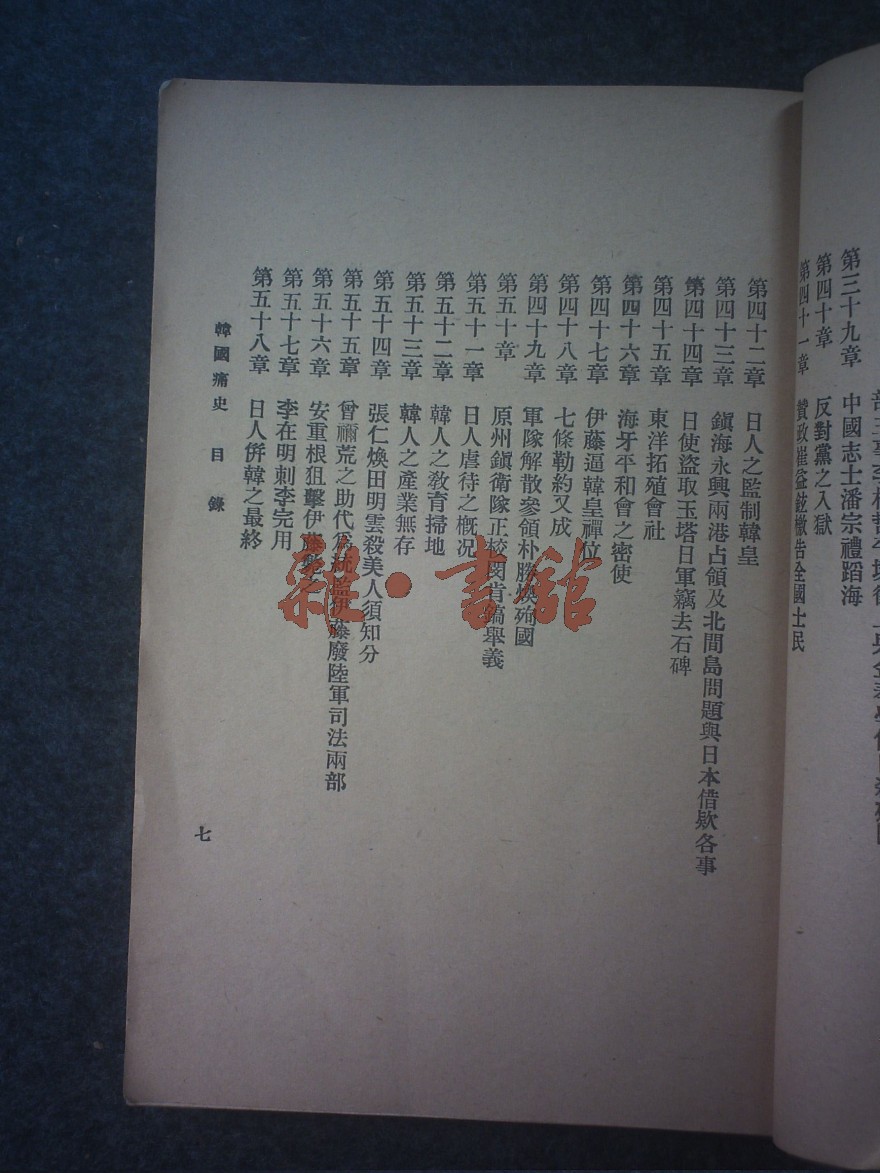 第三十九章　中國志士潘宗禮蹈海
第四十章　反對黨之入獄
第四十一章　贊政崔益鉉檄告全國士民
第四十二章　日人之監制韓皇
第四十三章　鎭海永興兩港占領及北間島問題與日本借欵各事
第四十四章　日使盜取玉塔日軍竊去石碑
第四十五章　東洋拓殖會社
第四十六章　海牙平和會之密使
第四十七章　伊藤逼韓皇禪位
第四十八章　七條勒約又成
第四十九章　軍隊解散參領朴勝煥殉國
第五十章　原州鎭衛隊正校閔肯鎬舉義
第五十一章　日人虐待之槪況
第五十二章　韓人之敎育掃地
第五十三章　韓人之產業無存
第五十四章　張仁煥田明雲殺美人須知分
第五十五章　曾禰荒之助代爲統監伊藤廢陸軍司法兩部
第五十六章　安重根狙擊伊藤
第五十七章　李在明刺李完用
第五十八章　日人併韓之最終
韓國痛史　目錄
七
雜·書館